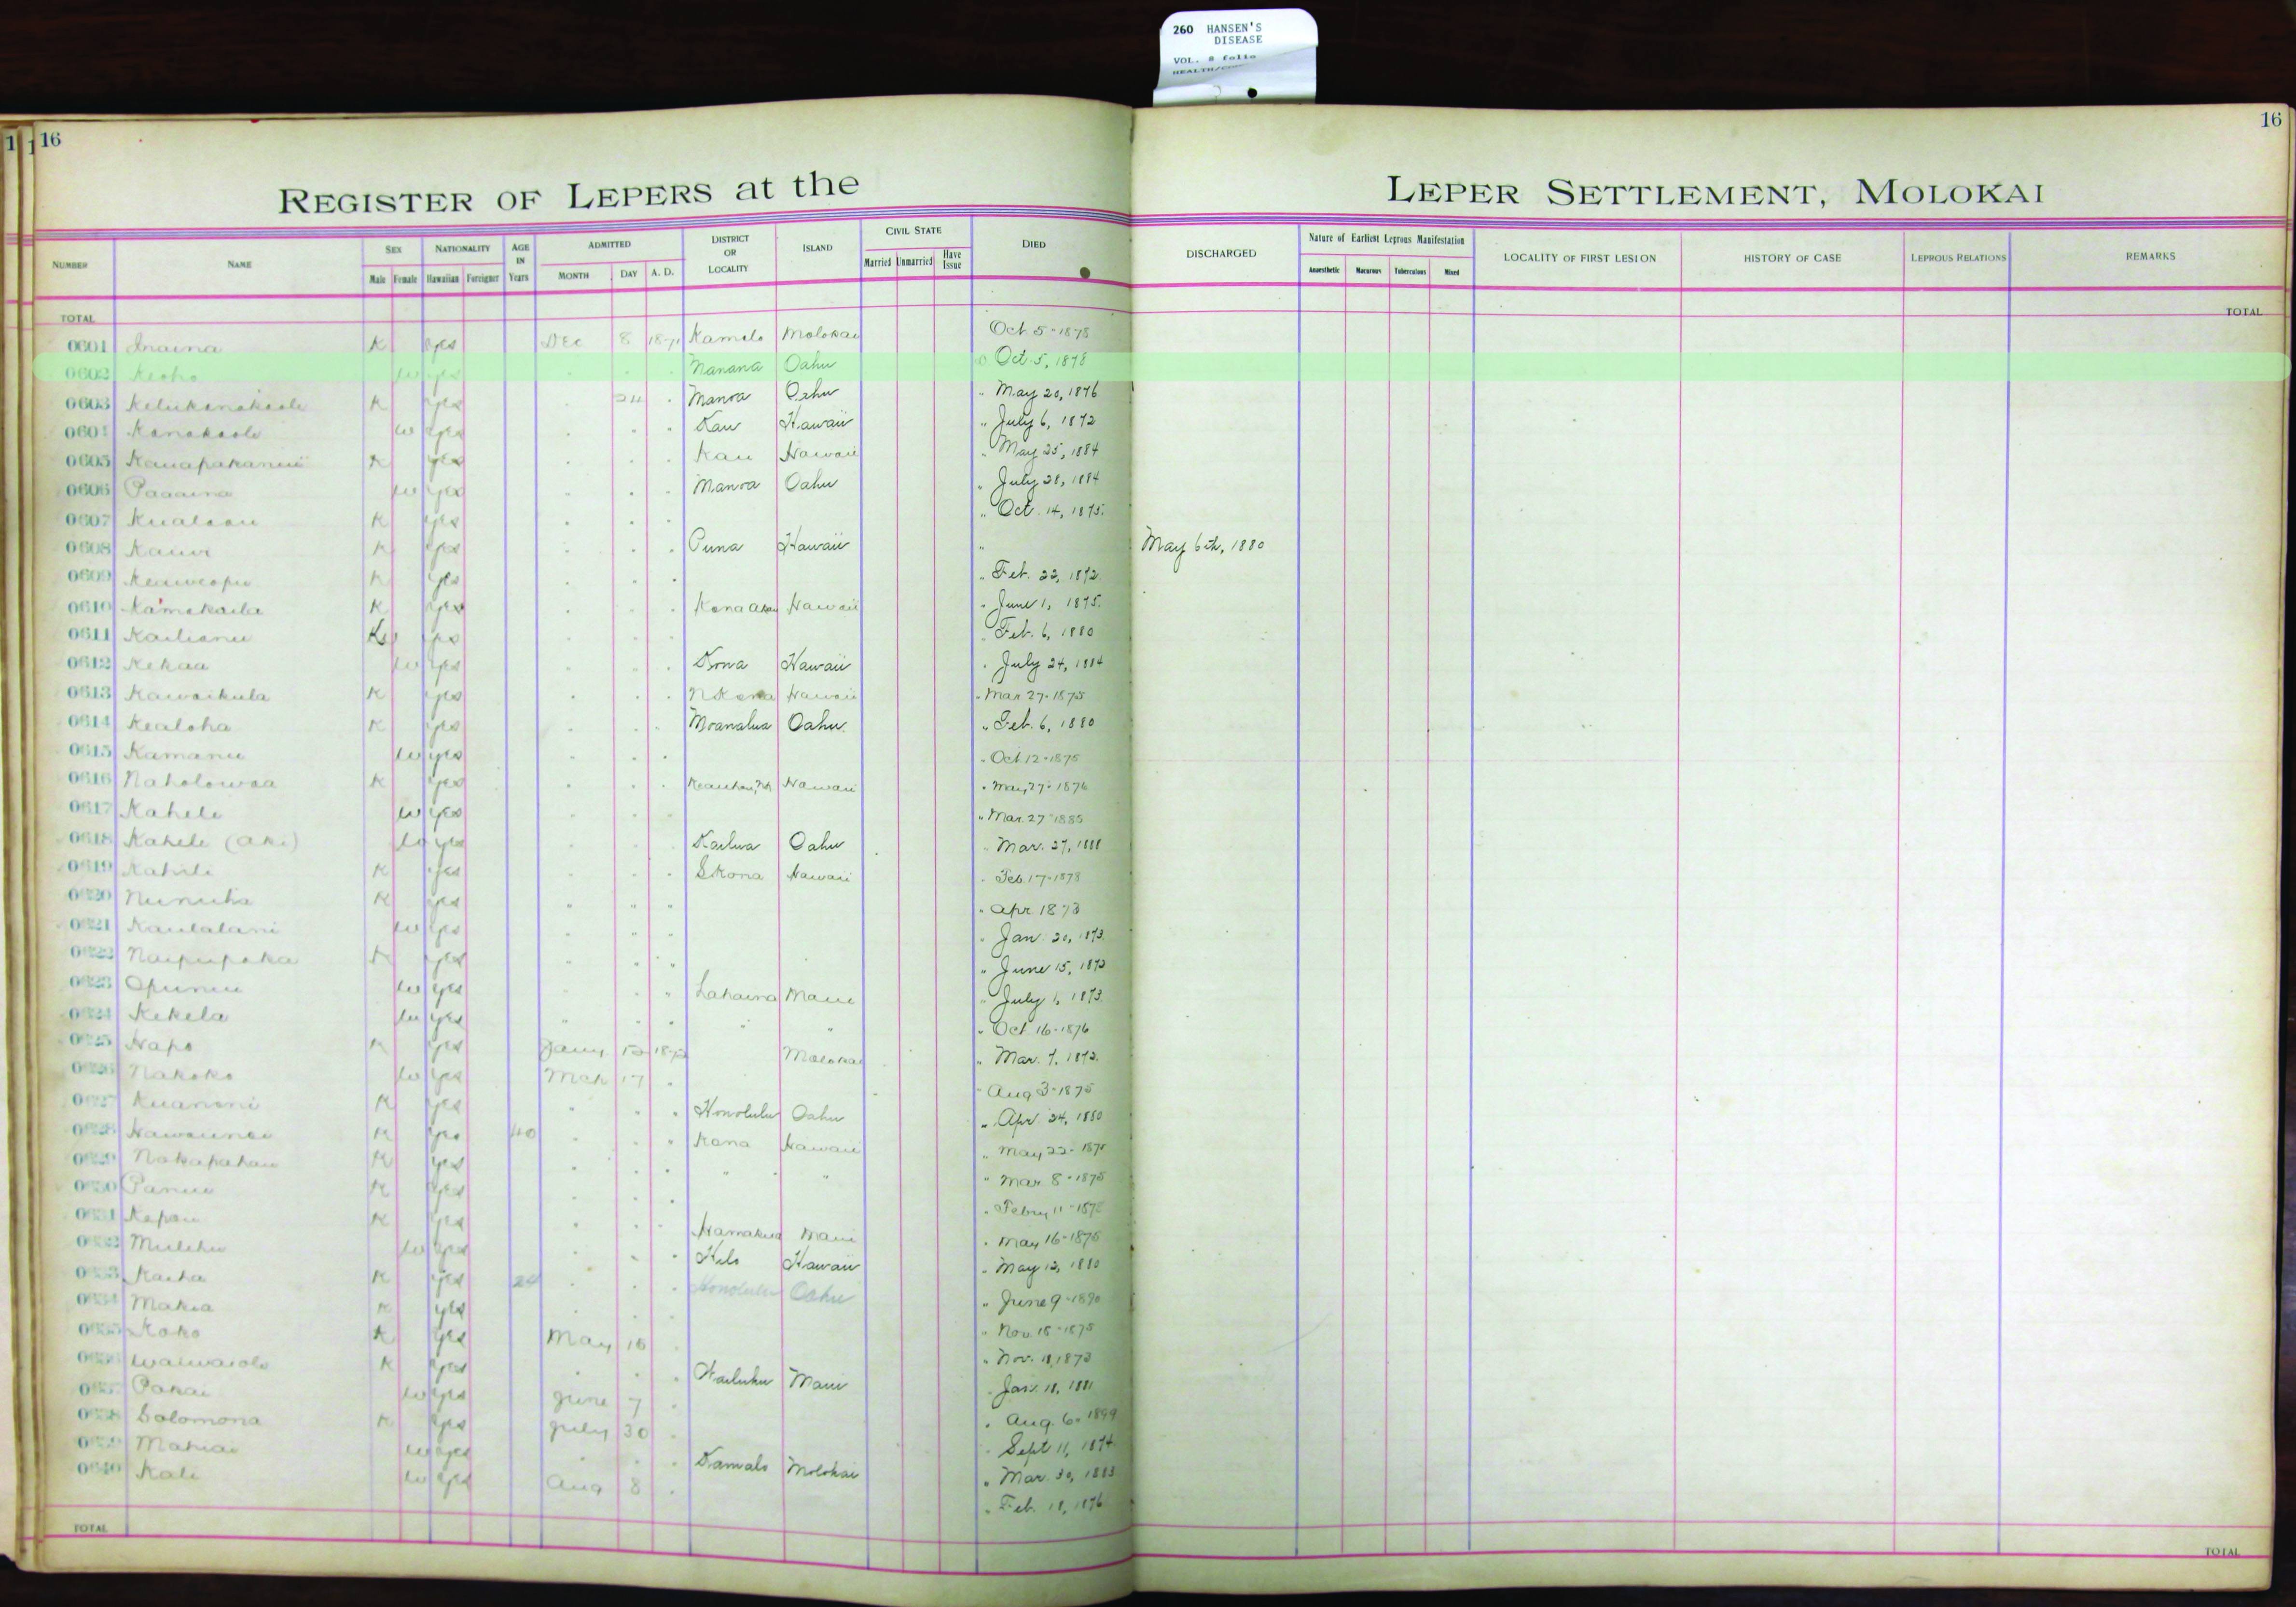 260 HANSEN'S
DISEASE
VOL. 8 folio
16
16
REGISTER OF LEPERS at the
LEPER SETTLEMENT, MOLOKAI
NUMBER NAME SEX Male Female NATIONALITY Hawaiian Foreigner AGE IN Years ADMITTED MONTH DAY A. D. DISTRICT OR LOCALITY ISLAND CIVIL STATE Married Unmarried Have Issue DIED DISCHARGED Nature of Earliest Leprous Manifestation Anaesthetic Macurous Tuberculous Mixed LOCALITY OF FIRST LESION HISTORY OF CASE LEPROUS RELATIONS REMARKS
TOTAL TOTAL
0601 Inaina K yes Dec 8 1871 Kamelo Molokai Oct 5-1878
0602 Keoho w yes Manana Oahu Oct. 5, 1878
0603 K yes 24 Manoa Oahu " May 20, 1876
0604 Kanakaole w yes Kau Hawaii " July 6, 1872
0605 K yes Kau Hawaii " May 25, 1884
0606 Paaaina w yes Manoa Oahu " July 28, 1884
0607 K yes " Oct. 14, 1875
0608 Kauwi K yes Puna Hawaii " May 6th, 1880
0609 Keaweopu K yes " Feb. 22, 1872
0610 Kamakaila K yes Kona Akau Hawaii " June 1, 1875
0611 Kailianu yes Feb. 6, 1880
0612 Kekaa w yes Kona Hawaii " July 24, 1884
0613 Kawaikula K yes N Kona Hawaii " Mar 27-1875
0614 Kealoha K yes Moanalua Oahu " Feb. 6, 1880
0615 Kamanu w yes " Oct 12-1875
0616 Naholowaa K yes Hawaii " May 27-1876
0617 Kahele w yes " Mar. 27-1885
0618 Kahele (Aki) w yes Kailua Oahu " Mar. 27, 1888
0619 Kahili K yes S Kona Hawaii " Feb. 17-1878
0620 K yes " " " " Apr 1873
0621 Kaulalani w yes " Jan. 20, 1873
0622 Naipupaka K yes " June 15, 1873
0623 Opunui w yes Lahaina Maui " July 1, 1873
0624 Kekela w yes " " " Oct 16-1876
0625 Hapo K yes Jany 1872 Molokai " Mar. 7, 1872
0626 Nakoko w yes Mch 17 " Aug 3-1875
0627 Kuanoni K yes Honolulu Oahu " Apr. 24, 1880
0628 K yes 40 Kona Hawaii " May 22-1875
0629 Nakapahau K yes " " " Mar. 8-1875
0630 Panui K yes " Febry 11-1872
0631 Kapau K yes Hamakua Maui " May 16-1875
0632 Mulehu w yes Hilo Hawaii " May 12, 1880
0633 Kaiha K yes 24 Honolulu Oahu " June 9-1890
0634 Makia K yes " Nov. 15-1875
0635 Koko K yes May 15 " Nov. 11, 1873
0636 K yes Wailuku Maui Jan. 18, 1881
0637 Pakai w yes June 7 " Aug. 6-1899
0638 Solomona K yes July 30 Sept 11, 1874
0639 Mahiai w yes Kamalo Molokai " Mar. 30, 1883
0640 Kali w yes Aug 8 " Feb. 18, 1876
TOTAL TOTAL